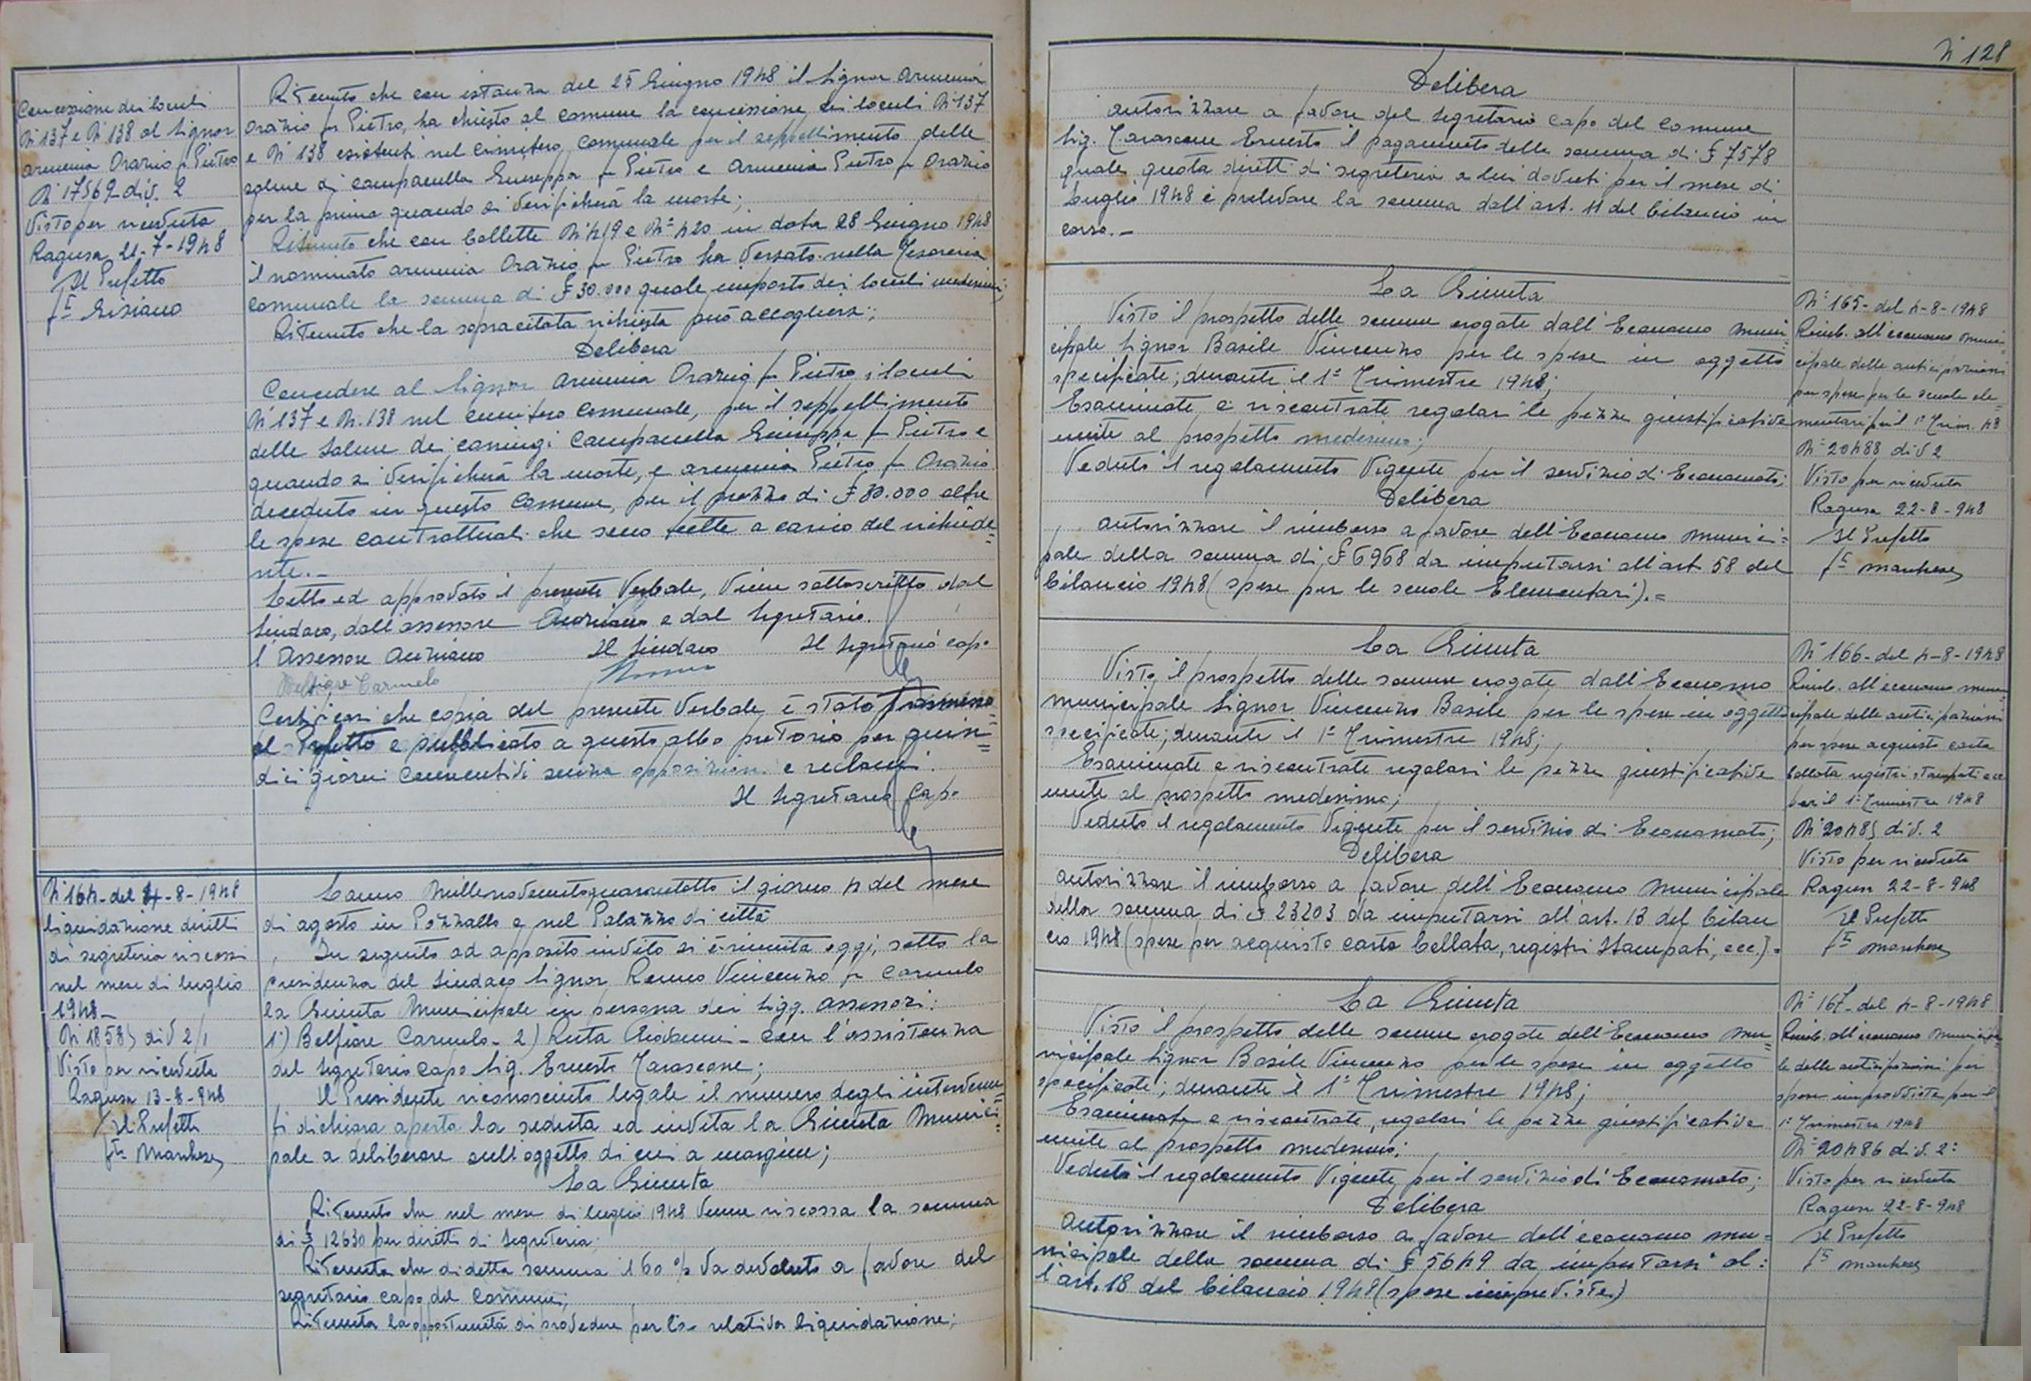 Concessione dei loculi
N° 137 e N° 138 al Signor
Armenia Orazio fu Pietro
N° 17569 div. 2
Visto per ricevuta
Ragusa 21-7-1948
Il Prefetto
Ritenuto che con istanza del 25 Giugno 1948 il Signor Armenia
Orazio fu Pietro, ha chiesto al comune la concessione dei loculi N° 137
e N° 138 esistenti nel cimitero comunale per il seppellimento delle
salme di Campanella Giuseppa fu Pietro e Armenia Pietro fu Orazio
per la prima quando si verificherà la morte;
Ritenuto che con bollette N° 419 e N° 420 in data 28 Giugno 1948
il nominato Armenia Orazio fu Pietro ha versato nella Tesoreria
comunale la somma di £ 30.000 quale importo dei loculi medesimi;
Ritenuto che la sopracitata richiesta può accogliersi;
Delibera
Concedere al Signor Armenia Orazio fu Pietro i loculi
N° 137 e N. 138 nel cimitero comunale, per il seppellimento
delle salme dei coniugi Campanella Giuseppa fu Pietro e
quando si verificherà la morte, e Armenia Pietro fu Orazio
deceduto in questo Comune, per il prezzo di £ 30.000 oltre
le spese contrattuali che sono a carico del richiede=
nte.-
Letto ed approvato il presente Verbale, viene sottoscritto dal
Sindaco, dall'assessore Anziano e dal Segretario.
l'Assessore Anziano Il Sindaco Il Segretario Capo
Belfiore Carmelo
Certificasi che copia del presente Verbale è stato trasmesso
al Prefetto e pubblicato a questo albo pretorio per quin=
dici giorni consecutivi senza opposizioni e reclami.
Il Segretario Capo
N° 164 - del 4-8-1948
liquidazione diritti
di segreteria riscossi
nel mese di luglio
1948-
N° 18585 div 2/1
Visto per ricevuta
Ragusa 13-8-948
Il Prefetto
fto Marchese
L'anno Millenovecentoquarantotto il giorno 4 del mese
di agosto in Pozzallo e nel Palazzo di città
In seguito ad apposito invito si è riunita oggi, sotto la
presidenza del Sindaco Signor Vincenzo fu Carmelo
la Giunta Municipale in persona dei Sigg. Assessori:
1) Belfiore Carmelo - 2) Ruta Giovanni - con l'assistenza
del Segretario capo Sig. Ernesto Tarascone;
Il Presidente riconosciuto legale il numero degli intervenu=
ti dichiara aperta la seduta ed invita la Giunta Munici=
pale a deliberare sull'oggetto di cui a margine;
La Giunta
Ritenuto che nel mese di luglio 1948 venne riscossa la somma
di £ 12630 per diritti di Segreteria;
Ritenuto che di detta somma il 60 % va devoluto a favore del
segretario capo del Comune;
Ritenuta la opportunità di provvedere per la relativa liquidazione;
N° 128
Delibera
Autorizzare a favore del Segretario capo del Comune
Sig. Tarascone Ernesto il pagamento della somma di £ 7578
quale quota diritti di segreteria a lui dovuti per il mese di
Luglio 1948 e prelevare la somma dall'art. 11 del bilancio in
corso.-
La Giunta
Visto il prospetto delle somme erogate dall'Economo Muni=
cipale Signor Basile Vincenzo per le spese in oggetto
specificate; durante il 1° Trimestre 1948;
Esaminate e riscontrate regolari le pezze giustificative
unite al prospetto medesimo;
Veduto il regolamento vigente per il servizio di Economato;
Delibera
Autorizzare il rimborso a favore dell'Economo Munici=
pale della somma di £ 6968 da imputarsi all'art 58 del
bilancio 1948 (spese per le scuole Elementari).=
N° 165 - del 4-8-1948
Rimb. all'economo muni=
cipale delle anticipazioni
per spese per le scuole ele=
mentari per il 1° Trim. 48
N° 20488 div 2
Visto per ricevuta
Ragusa 22-8-948
Il Prefetto
fto Marchese
La Giunta
Visto il prospetto delle somme erogate dall'Economo
municipale Signor Vincenzo Basile per le spese in oggetto
specificate; durante il 1° Trimestre 1948;
Esaminate e riscontrate regolari le pezze giustificative
unite al prospetto medesimo;
Veduto il regolamento vigente per il servizio di Economato;
Delibera
Autorizzare il rimborso a favore dell'Economo Municipale
della somma di £ 23203 da imputarsi all'art. 13 del bilan
cio 1948 (spese per acquisto carta bollata, registri stampati, ecc.).
N° 166 - del 4-8-1948
Rimb. all'economo muni=
cipale delle anticipazioni
per spese acquisto carta
bollata registri stampati ecc
per il 1° Trimestre 1948
N° 20485 div. 2
Visto per ricevuta
Ragusa 22-8-948
Il Prefetto
fto Marchese
La Giunta
Visto il prospetto delle somme erogate dell'Economo mu=
nicipale Signor Basile Vincenzo per le spese in oggetto
specificate; durante il 1° Trimestre 1948;
Esaminate e riscontrate regolari le pezze giustificative
unite al prospetto medesimo;
Veduto il regolamento vigente per il servizio di Economato;
Delibera
Autorizzare il rimborso a favore dell'economo mu=
nicipale della somma di £ 5649 da imputarsi al=
l'art. 18 del bilancio 1948 (spese impreviste)
N° 167 - del 4-8-1948
Rimb. all'economo Municipa=
le delle anticipazioni per
spese impreviste per il
1° Trimestre 1948
N° 20486 div. 2=
Visto per ricevuta
Ragusa 22-8-948
Il Prefetto
fto Marchese